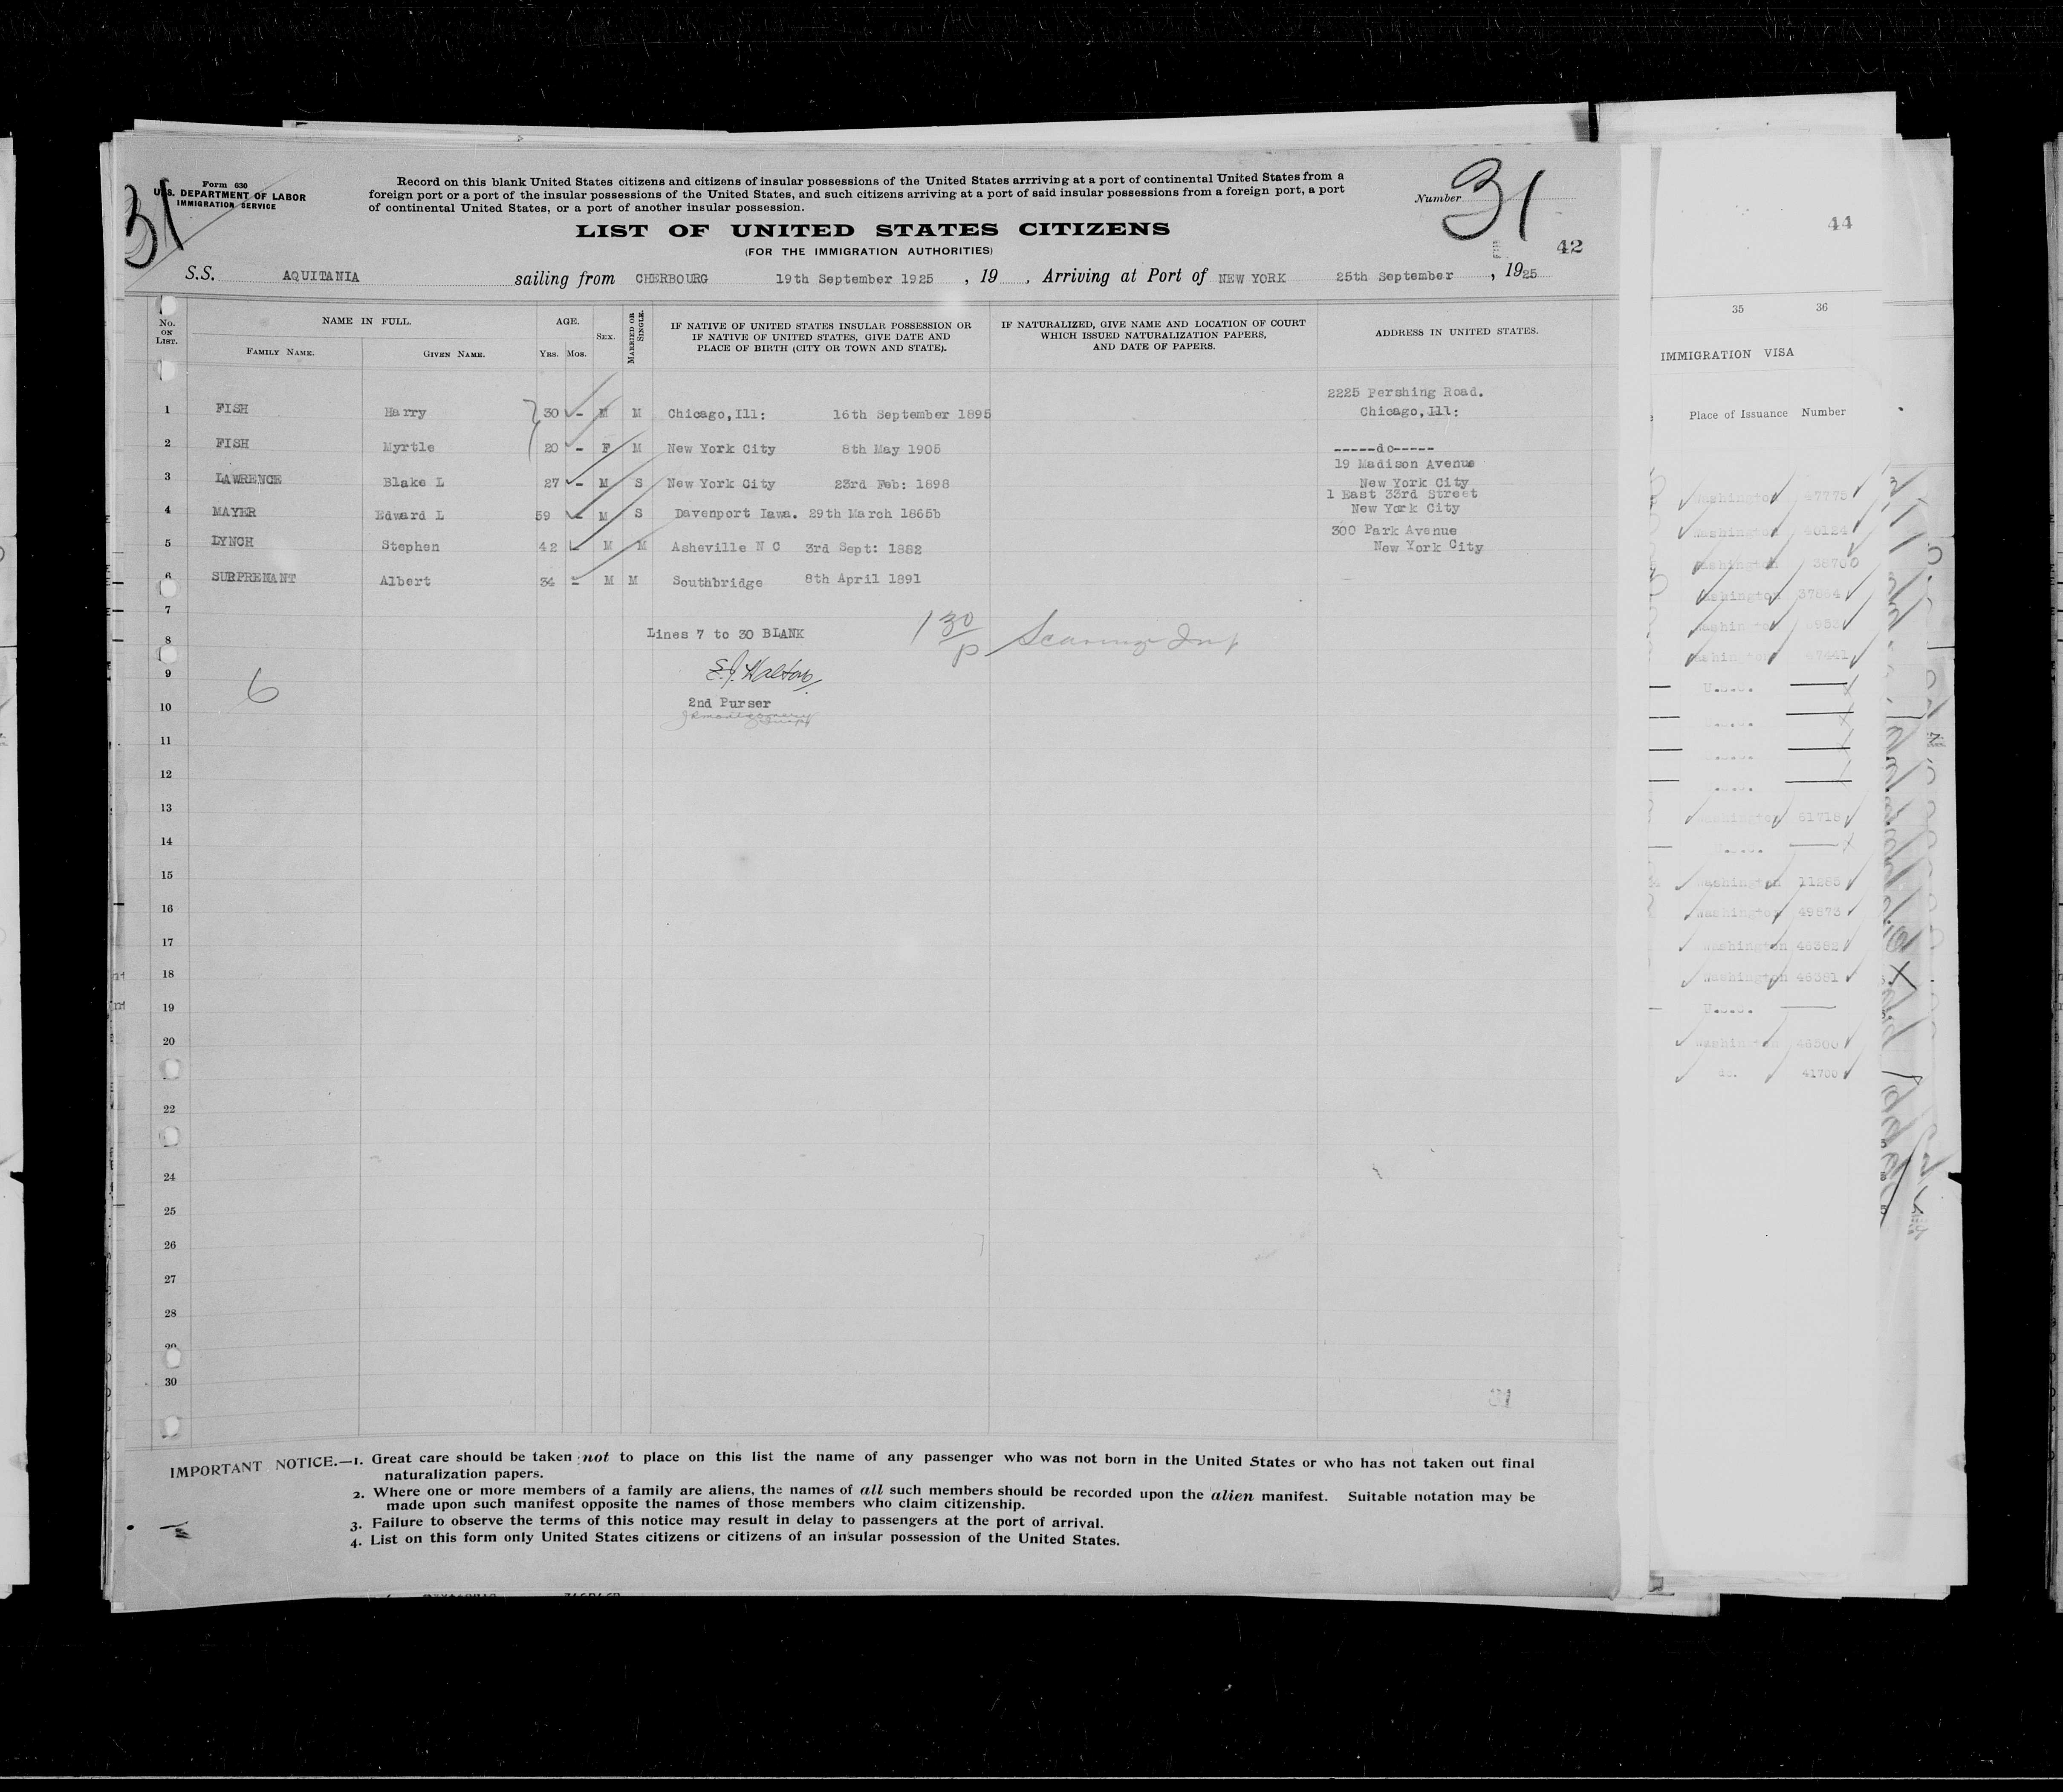 Form 630
U.S. DEPARTMENT OF LABOR
IMMIGRATION SERVICE
31
Record on this blank United States citizens and citizens of insular possessions of the United States arrriving at a port of continental United States from a
foreign port or a port of the insular possessions of the United States, and such citizens arriving at a port of said insular possessions from a foreign port, a port
of continental United States, or a port of another insular possession.
Number 31
42
LIST OF UNITED STATES CITIZENS
(FOR THE IMMIGRATION AUTHORITIES)
S.S. AQUITANIA sailing from CHERBOURG 19th September 1925, 19 , Arriving at Port of NEW YORK 25th September, 1925
No. ON LIST.
NAME IN FULL.
FAMILY NAME. GIVEN NAME.
AGE.
YRS. MOS.
SEX.
MARRIED OR SINGLE.
IF NATIVE OF UNITED STATES INSULAR POSSESSION OR
IF NATIVE OF UNITED STATES, GIVE DATE AND
PLACE OF BIRTH (CITY OR TOWN AND STATE).
IF NATURALIZED, GIVE NAME AND LOCATION OF COURT
WHICH ISSUED NATURALIZATION PAPERS,
AND DATE OF PAPERS.
ADDRESS IN UNITED STATES.
2225 Pershing Road.
1 FISH Harry 30 - M M Chicago,Ill: 16th September 1895 Chicago,Ill:
2 FISH Myrtle 20 - F M New York City 8th May 1905 -----do-----
19 Madison Avenue
3 LAWRENCE Blake L 27 - M S New York City 23rd Feb: 1898 New York City
1 East 33rd Street
4 MAYER Edward L 59 - M S Davenport Iawa. 29th March 1865b New York City
300 Park Avenue
5 LYNCH Stephen 42 - M M Asheville N C 3rd Sept: 1882 New York City
6 SURPRENANT Albert 34 - M M Southbridge 8th April 1891
7
8 Lines 7 to 30 BLANK
130
p
9 E.J. Walton
6
10 2nd Purser
11
12
13
14
15
16
17
18
19
20
22
24
25
26
27
28
29
30
31
IMPORTANT NOTICE.—1. Great care should be taken not to place on this list the name of any passenger who was not born in the United States or who has not taken out final
naturalization papers.
2. Where one or more members of a family are aliens, the names of all such members should be recorded upon the alien manifest. Suitable notation may be
made upon such manifest opposite the names of those members who claim citizenship.
3. Failure to observe the terms of this notice may result in delay to passengers at the port of arrival.
4. List on this form only United States citizens or citizens of an insular possession of the United States.
44
35 36
IMMIGRATION VISA
Place of Issuance Number
Washington 47775
Washington
Washington
Washington
Washington
Washington
Washington 61718
Washington
Washington 49873
Washington 46382
Washington 46381
Washington 46500
do. 41760